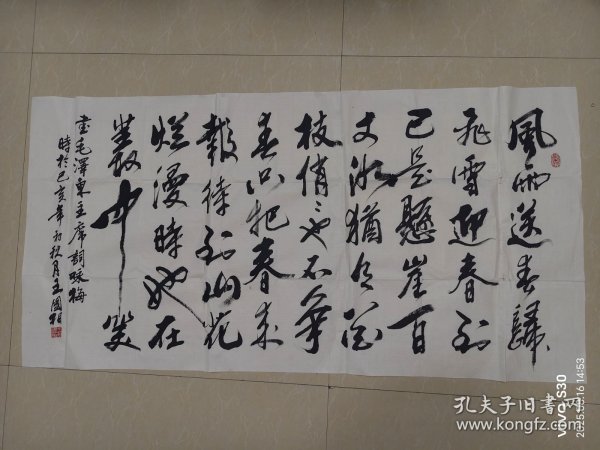 風雨送春歸
飛雪迎春到
已是懸崖百
丈冰猶有花
枝俏俏也不爭
春只把春來
報待到山花
爛漫時她在
叢中笑
書毛澤東主席詞咏梅
時於己亥年初秋月王國
vivo S30
2025.09.16 14:53
孔夫子旧书网
www.kongfz.com